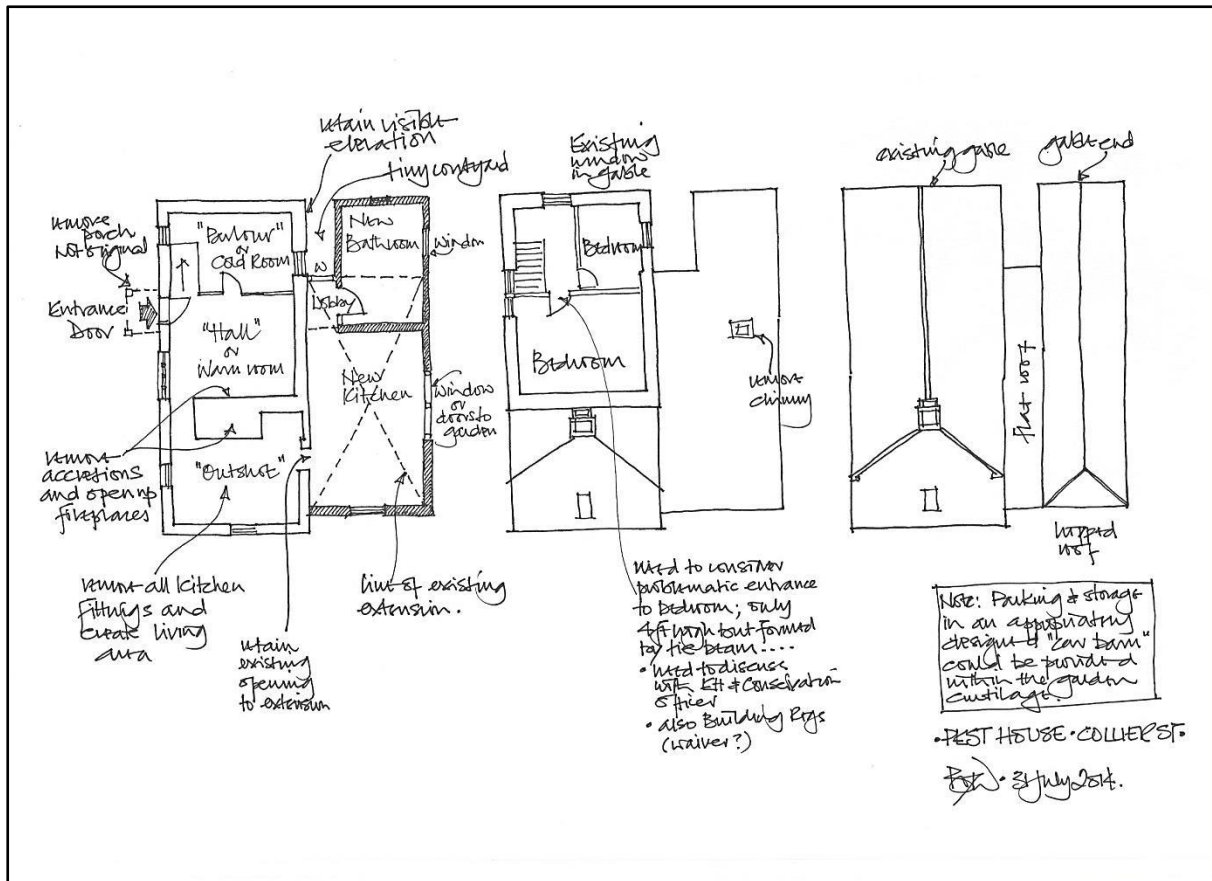 retain visible
elevation
tiny courtyard
remove
porch
not original
Entrance
Door
"Parlour"
or
Cold Room
New
Bathroom
Window
W
Lobby
"Hall"
or
Warm room
New
Kitchen
Window
or
doors to
garden
"Outshot"
remove
accretions
and open up
fireplaces
remove all kitchen
fittings and
create living
area
retain
existing
opening
to extension
line of existing
extension.
Existing
window
in gable
Bedroom
Bedroom
remove
chimney
need to consider
problematic entrance
to bedroom; only
4ft high but formed
by tie beam....
• need to discuss
with EH & Conservation
officer
• also Building Regs
(waiver?)
existing gable
gable end
flat roof
hipped
roof
Note: Parking & storage
in an appropriately
designed "car barn"
could be provided
within the garden
curtilage.
• PEST HOUSE • COLLIER ST •
• 31 July 2014.